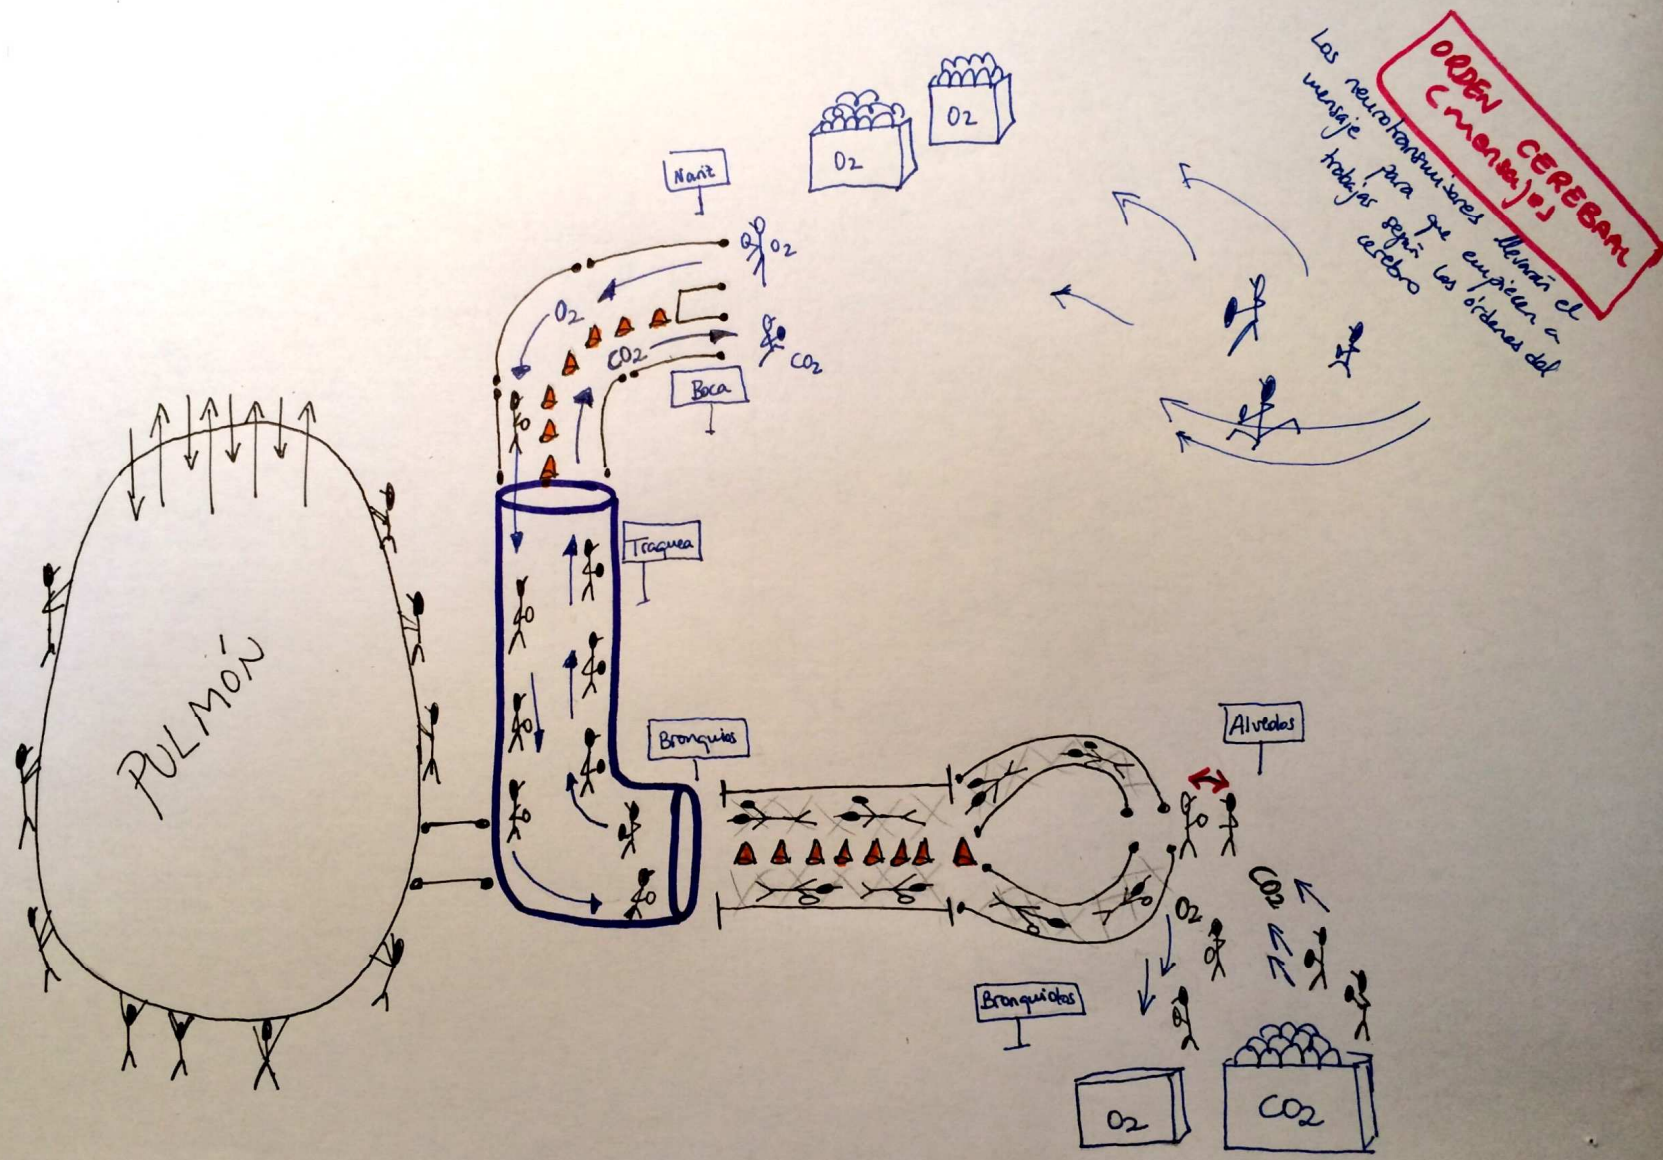 ORDEN CEREBRAL
(mensaje)
Los neurotransmisores llevarán el
mensaje para que empiecen a
trabajar según las órdenes del
cerebro
O2
O2
Nariz
O2
O2
CO2
CO2
Boca
Traquea
PULMÓN
Bronquios
Alveolos
CO2
O2
Bronquiolos
O2
CO2